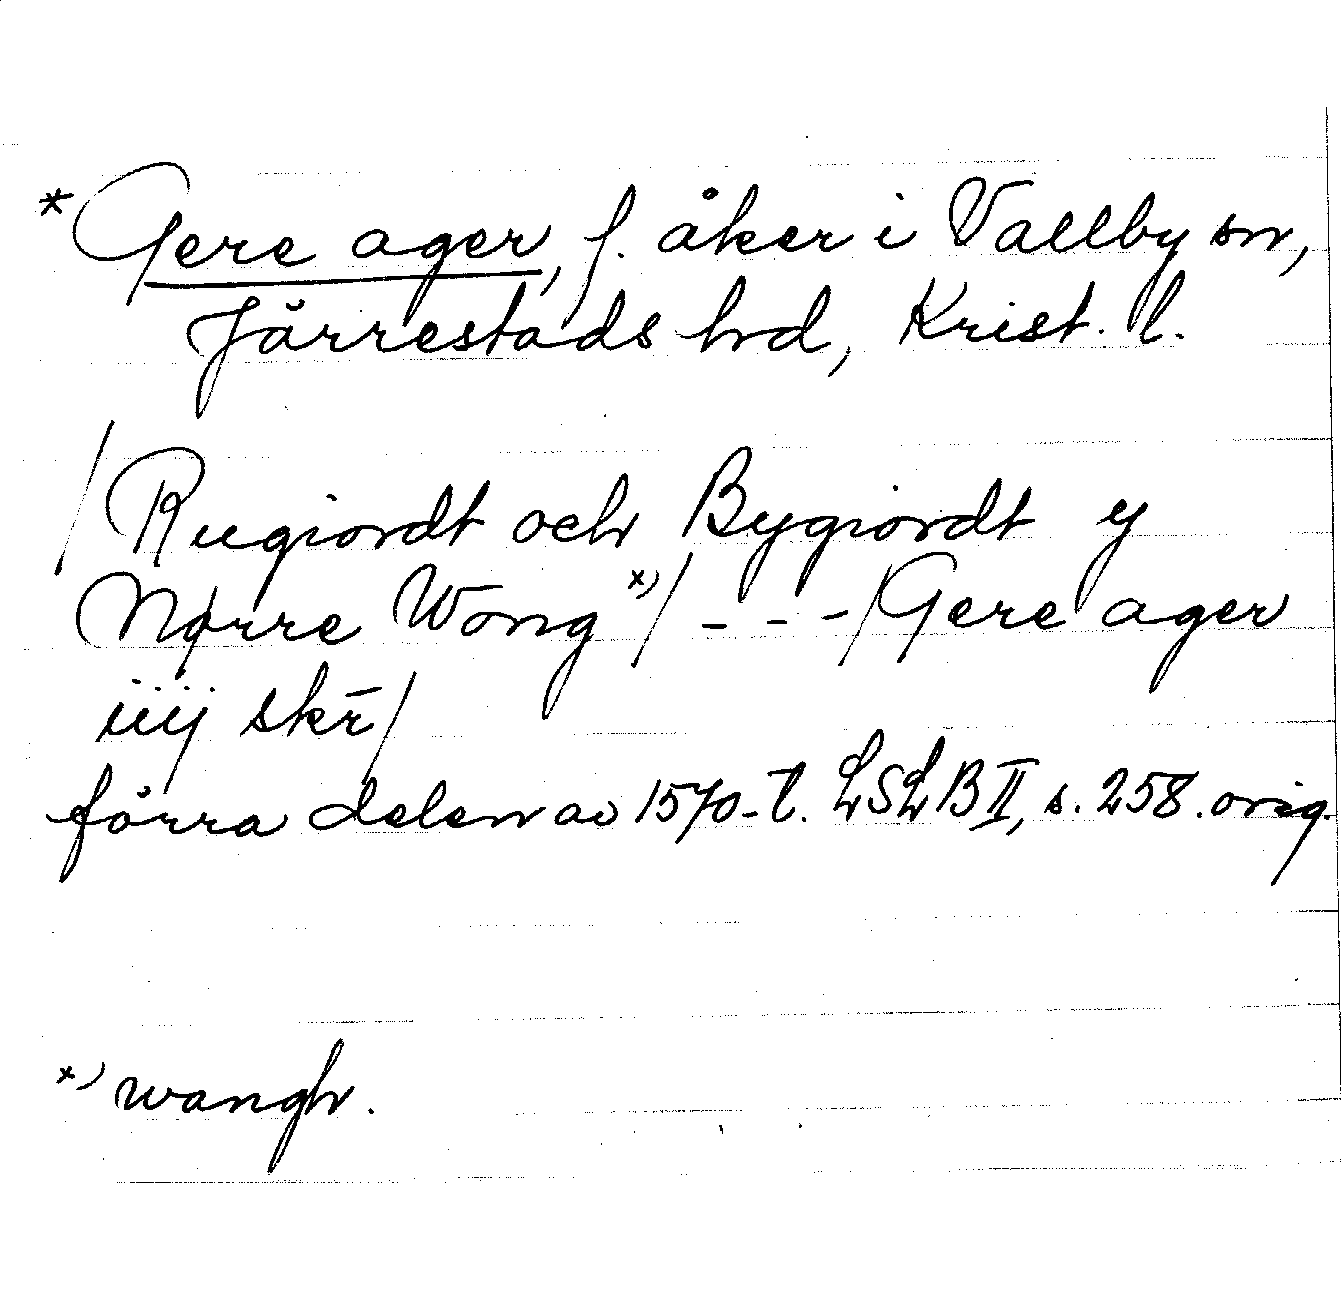 * Gere ager, f. åker i Vallby sn,
Järrestads hd, Krist. l.
/Rugiordt och Bygiordt y
Nørre Wong *)/ - - - /Gere ager
iiij skr̄/
förra delen av 1570-t. LSLB II, s. 258. orig.
*) wangh.